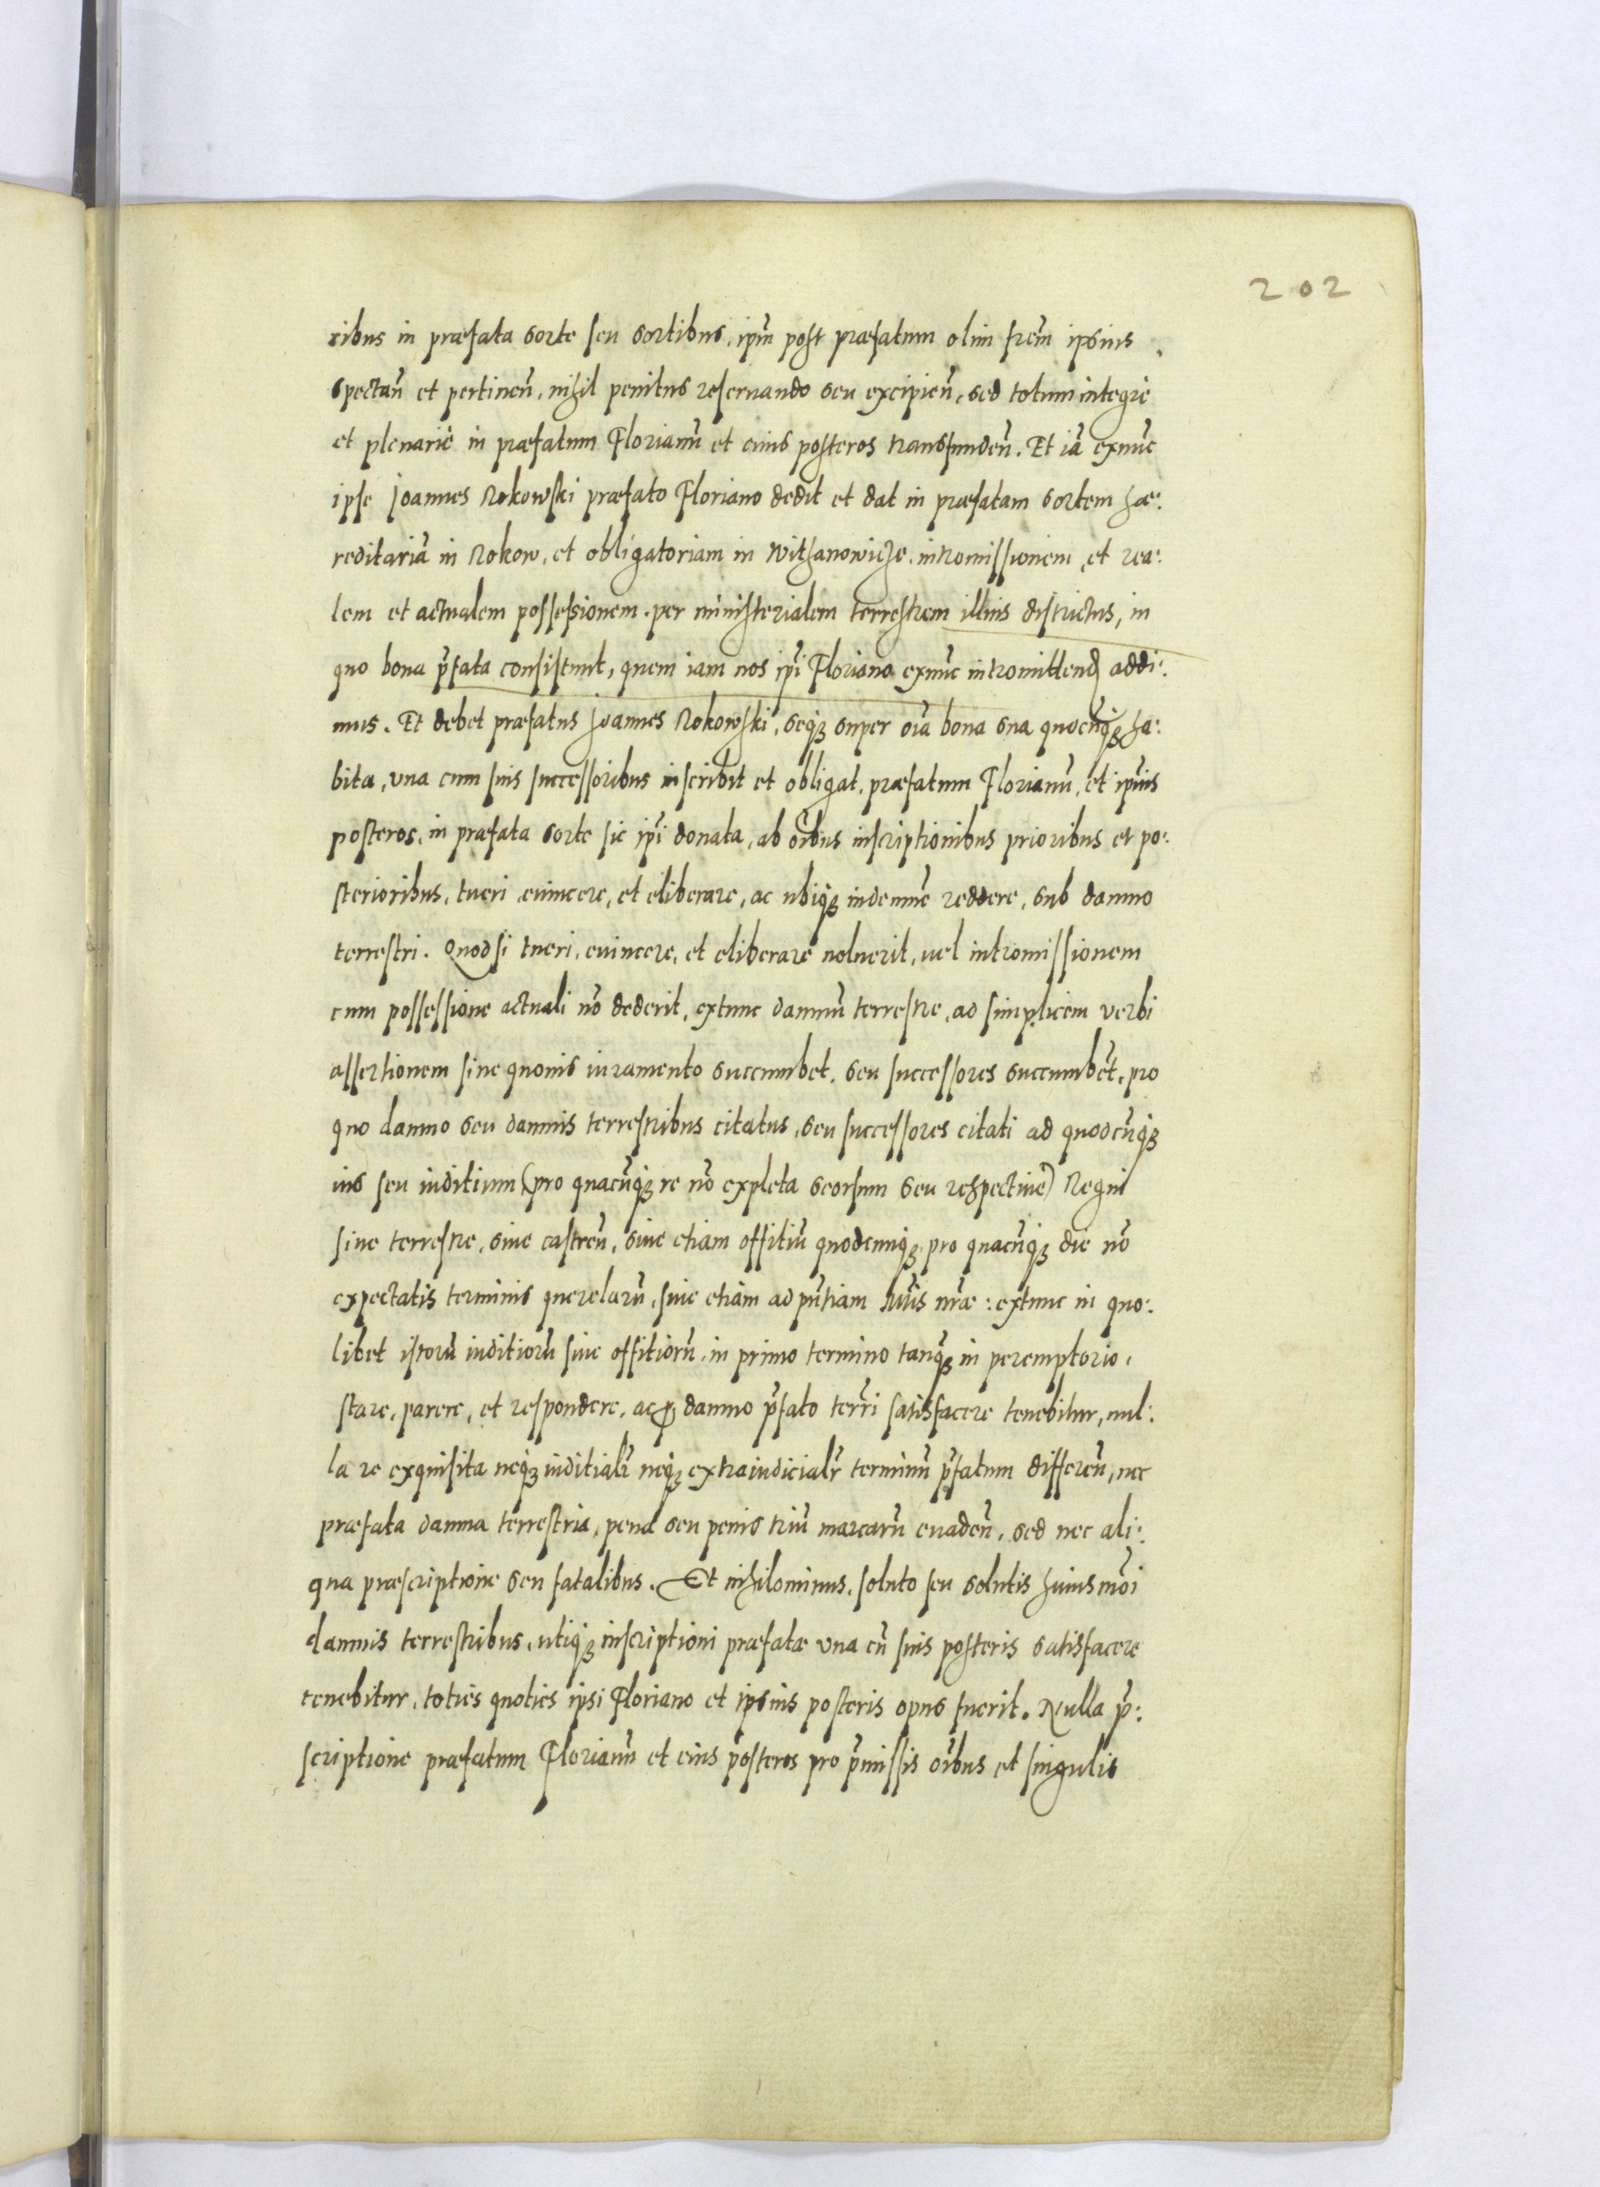 202
ribus in præfata sorte seu sortibus, ipm̃ post præfatum olim frem̃ ipsius
spectan̄ et pertinen̄, nihil penitus reseruando seu excipien̄, sed totum integrè
et plenariè in præfatum Florianū et eius posteros transfunden̄. Et iā exnūc
ipse Joannes Rokowski præfato Floriano dedit et dat in præfatam sortem hæ:
reditariā in Rokow, et obligatoriam in Withanowicze, intromissionem, et rea:
lem et actualem possessionem, per ministerialem terrestrem illius districtus, in
quo bona p̄fata consistunt, quem iam nos ip̄i Floriano exnūc intromittend addi:
mus. Et debet præfatus Joannes Rokowski, seq̨ super oīa bona sua quocūq̨ ha:
bita, vna cum suis successoribus inscribit et obligat, præfatum Florianū, et ip̄ius
posteros, in præfata sorte sic ip̄i donata, ab oībus inscriptionibus prioribus et po:
sterioribus, tueri, euincere, et eliberare, ac ubiq̨ indemnē reddere, sub damno
terrestri. Quod si tueri, euincere, et eliberare noluerit, uel intromissionem
cum possessione actuali nō dederit, extunc damnū terrestre, ad simplicem verbi
assertionem sine quouis iuramento succumbet, seu successores succumbēt, pro
quo damno seu damnis terrestribus citatus, seu successores citati ad quodcūq̨
ius seu iuditium (pro quacūq̨ re nō expleta seorsum seu respectiuè) Regni
siue terrestre, siue castren̄, siue etiam offitiū quodcunq̨, pro quacūq̨ die nō
expectatis terminis querelarū, siue etiam ad pn̄tiam Mtis nr̄æ: extunc in quo:
libet istorū iuditiorū siue offitiorū, in primo termino tanq̨ in peremptorio,
stare, parere, et respondere, ac p damno p̄fato terr̄i satisfacere tenebitur, nul:
la re exquisita neq̨ iuditialr̄ neq̨ extraiudicialr̄ terminū p̄fatum differen̄, nec
præfata damna terrestria, pena seu penis triū marcarū euaden̄, sed nec ali:
qua præscriptione seu fatalibus. Et nihilominus, soluto seu solutis huiusmōi
damnis terrestribus, utiq̨ inscriptioni præfatæ vna cū suis posteris satisfacere
tenebitur, toties quoties ipsi Floriano et ipsius posteris opus fuerit. Nulla p̄:
scriptione præfatum Florianū et eius posteros pro p̄missis oībus et singulis